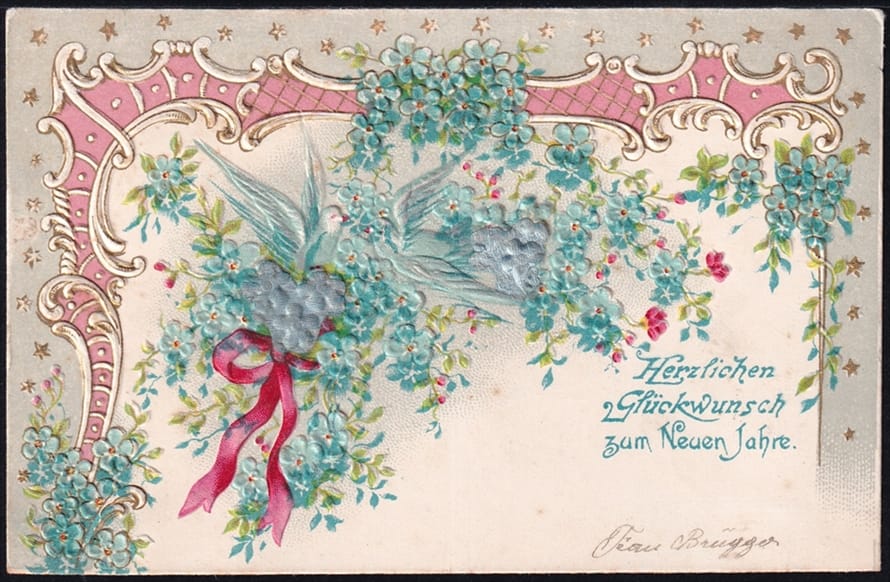 Herzlichen
Glückwunsch
zum Neuen Jahre.
Frau Brügger